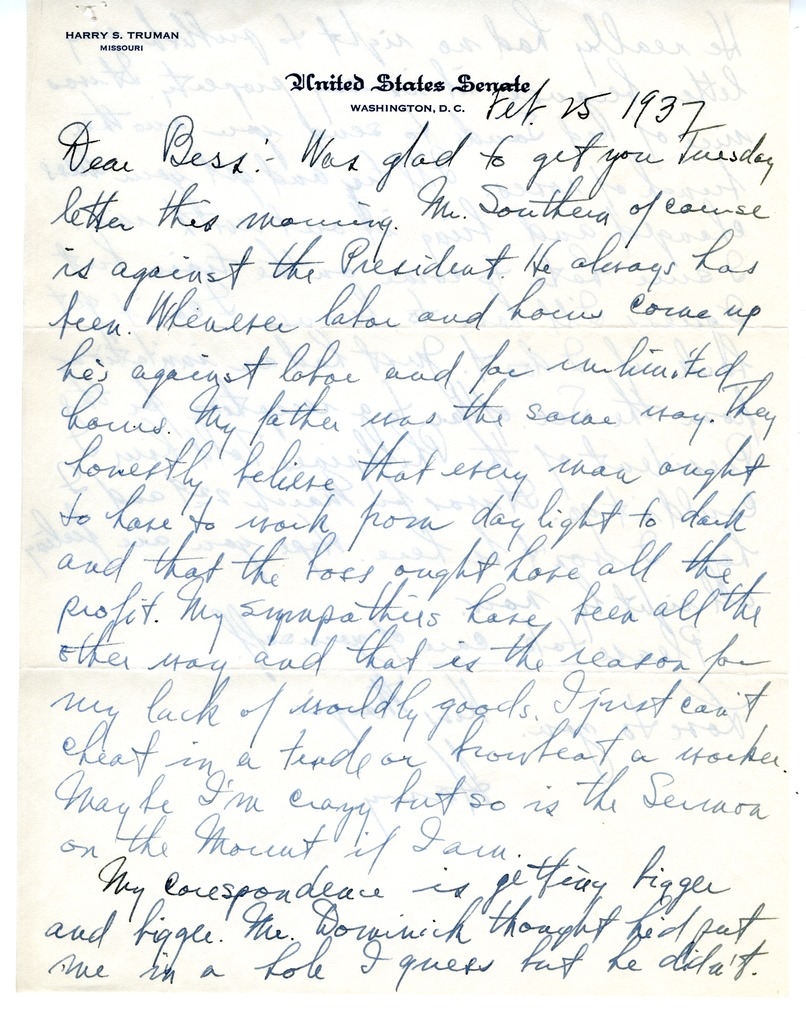 HARRY S. TRUMAN
MISSOURI
United States Senate
WASHINGTON, D. C.
Feb. 25 1937
Dear Bess:- Was glad to get you Tuesday
letter this morning. Mr. Southern of course
is against the President. He always has
been. Whenever labor and hours come up
he's against labor and for unlimited
hours. My father was the same way. They
honestly believe that every man ought
to have to work from daylight to dark
and that the boss ought have all the
profit. My sympathies have been all the
other way and that is the reason for
my lack of worldly goods. I just can't
cheat in a trade or browbeat a worker.
Maybe I'm crazy but so is the Sermon
on the Mount if I am.
My corespondence is getting bigger
and bigger. Mr. Dominick thought he'd put
me in a hole I guess but he didn't.